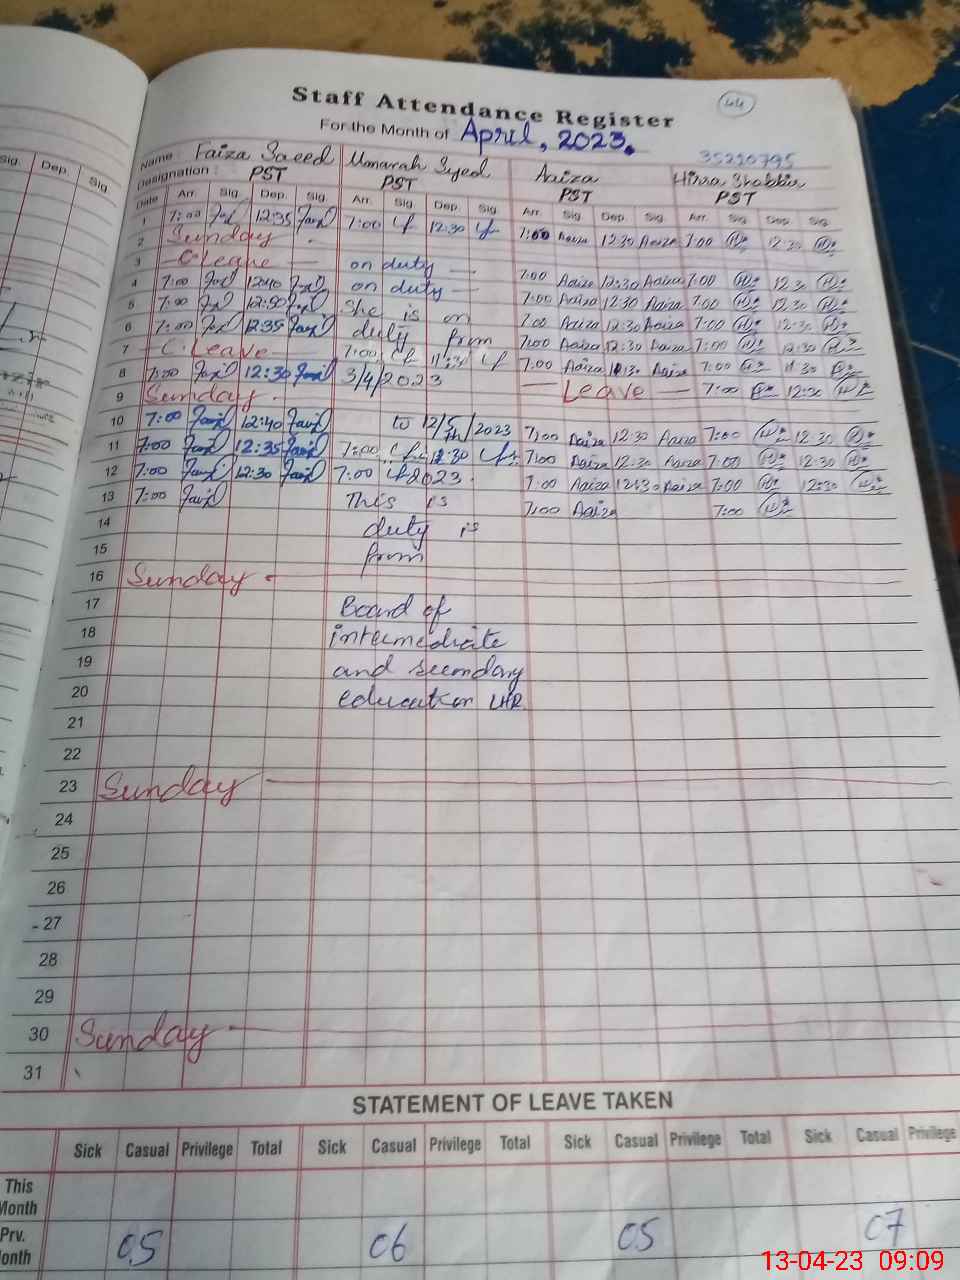 44
Staff Attendance Register
For the Month of April, 2023.
35210795
Name Faiza Saeed Umarah Syed Aaiza Hirra Shabbir
Designation: PST PST PST PST
Date Arr. Sig. Dep. Sig. Arr. Sig. Dep. Sig. Arr. Sig. Dep. Sig. Arr. Sig. Dep. Sig.
1 7:00 12:35 7:00 12:30 7:00 Aaiza 12:30 Aaiza 7:00 12:30
2 Sunday
3 C. leave on duty 7:00 Aaiza 12:30 Aaiza 7:00 12:30
4 7:00 12:40 on duty 7:00 Aaiza 12:30 Aaiza 7:00 12:30
5 7:00 12:50 She is on 7:00 Aaiza 12:30 Aaiza 7:00 12:30
6 7:00 12:35 duty from 7:00 Aaiza 12:30 Aaiza 7:00 12:30
7 C. Leave 7:00 11:30 7:00 Aaiza 11:30 Aaiza 7:00 11:30
8 7:00 12:30 3/4/2023 Leave 7:00 12:30
9 Sunday
10 7:00 12:40 to 12/5/2023 7:00 Aaiza 12:30 Aaiza 7:00 12:30
11 7:00 12:35 7:00 12:30 7:00 Aaiza 12:30 Aaiza 7:00 12:30
12 7:00 12:30 7:00 2023. 7:00 Aaiza 12:30 Aaiza 7:00 12:30
13 7:00 This is 7:00 Aaiza 7:00
14 duty is
15 from
16 Sunday
17 Board of
18 intermediate
19 and secondary
20 education LHR
21
22
23 Sunday
24
25
26
27
28
29
30 Sunday
31
STATEMENT OF LEAVE TAKEN
Sick Casual Privilege Total Sick Casual Privilege Total Sick Casual Privilege Total Sick Casual Privilege
This Month
Prv. Month 05 06 05 07
13-04-23 09:09